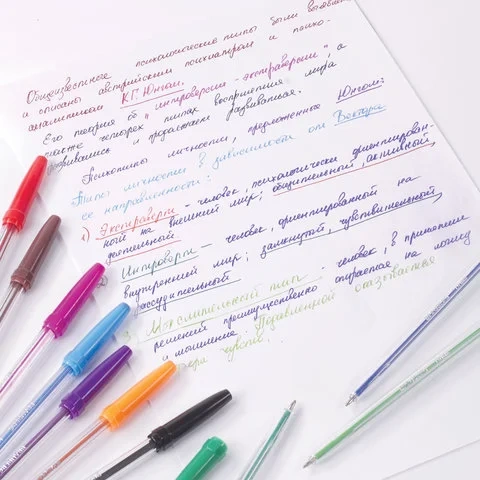 Общеизвестные психологические типы были выявлены
и описаны австрийским психиатром и психо-
аналитиком К.Г. Юнгом.
Его теория об "интроверсии - экстраверсии", а
также четырех типах восприятия мира
развивались и продолжают развиваться.
Психотипы личности, предложенные Юнгом:
Типы личности в зависимости от Вектора
её направленности:
1) Экстраверты - человек, психологически ориентирован-
ный на внешний мир; общительный, активный,
деятельный
Интроверты - человек, ориентированный на
внутренний мир; замкнутой, чувствительный,
рассудительный
Мыслительный тип - человек, в принятии
решений преимущественно опирается на логику
и мышление. Подавленной оказывается
сфера чувств.